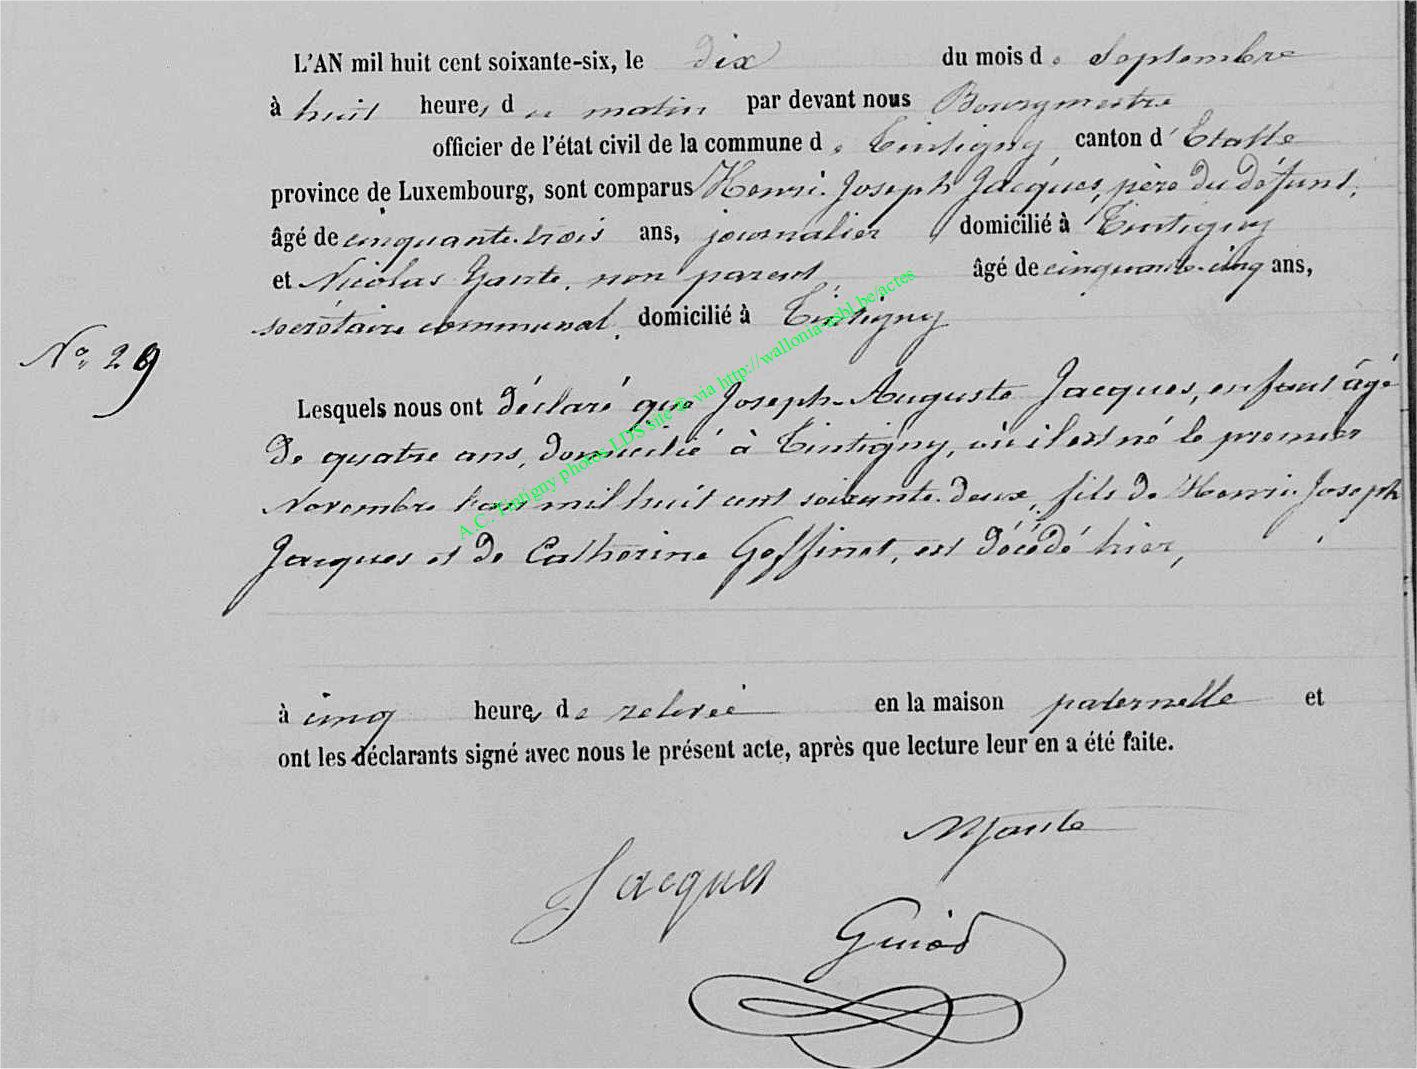 L'AN mil huit cent soixante-six, le dix du mois de Septembre
à huit heures du matin par devant nous Bourgmestre
officier de l'état civil de la commune de Tintigny, canton d'Etalle
province de Luxembourg, sont comparus Henri-Joseph Jacques, père du défunt,
âgé de cinquante-trois ans, journalier domicilié à Tintigny
et Nicolas Gante, non parent, âgé de cinquante-cinq ans,
secrétaire communal, domicilié à Tintigny
N° 29
Lesquels nous ont déclaré que Joseph-Auguste Jacques, enfant âgé
de quatre ans, domicilié à Tintigny, où il est né le premier
Novembre l'an mil huit cent soixante-deux, fils de Henri-Joseph
Jacques et de Catherine Goffinet, est décédé hier,
à cinq heures de relevée en la maison paternelle et
ont les déclarants signé avec nous le présent acte, après que lecture leur en a été faite.
NGante
Jacques
A.C. Tintigny photos LDS site @ via http://wallonia-asbl.be/actes